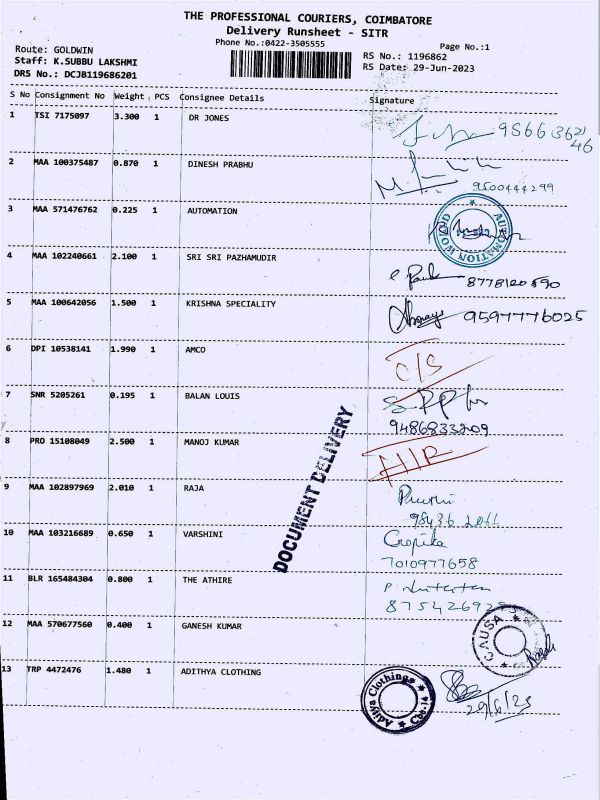 THE PROFESSIONAL COURIERS, COIMBATORE
Delivery Runsheet - SITR
Phone No.:0422-3505555
Page No.:1
Route: GOLDWIN
Staff: K.SUBBU LAKSHMI
DRS No.: DCJB119686201
RS No.: 1196862
RS Date: 29-Jun-2023
S No Consignment No Weight PCS Consignee Details Signature
1 TSI 7175097 3.300 1 DR JONES
2 MAA 100375487 0.870 1 DINESH PRABHU 9500444299
3 MAA 571476762 0.225 1 AUTOMATION
AUTOMATION WORLD
4 MAA 102240661 2.100 1 SRI SRI PAZHAMUDIR
5 MAA 100642056 1.500 1 KRISHNA SPECIALITY 9597776025
6 DPI 10538141 1.990 1 AMCO
C/S
7 SNR 5205261 0.195 1 BALAN LOUIS
9486833209
8 PRO 15108049 2.500 1 MANOJ KUMAR
DOCUMENT DELIVERY
9 MAA 102897969 2.010 1 RAJA
10 MAA 103216689 0.650 1 VARSHINI Gopika
7010977658
11 BLR 165484304 0.800 1 THE ATHIRE
12 MAA 570677560 0.400 1 GANESH KUMAR
CAUSA
13 TRP 4472476 1.480 1 ADITHYA CLOTHING
Aditya Clothings
Cbe-14
29/6/23